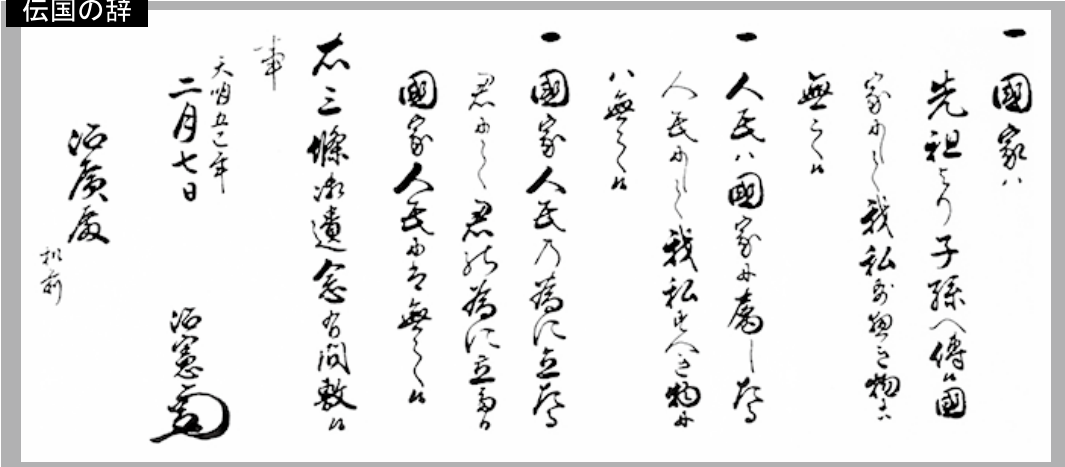 伝国の辞
一 國家ハ
先祖より子孫へ傳候國
家にして我私すへき物ニハ
無之候
一 人民ハ國家に属したる
人民にして我私すへき物に
ハ無之候
一 國家人民乃為に立たる
君にして君の為に立
國家人民にハ無之候
右三條御遺念有間敷候
事
天明五巳年
二月七日 治憲
治廣殿
机前